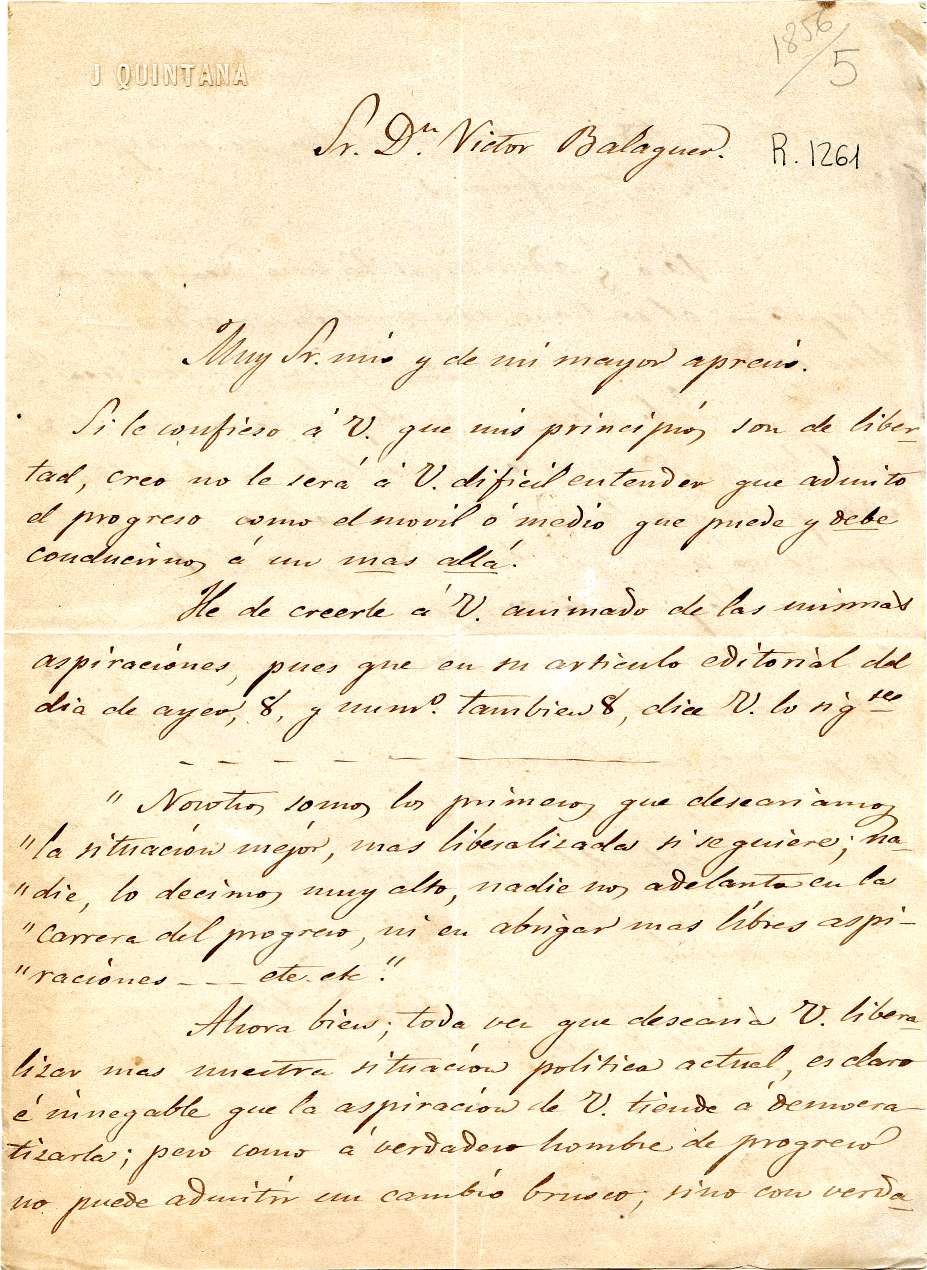 J QUINTANA
1856/5
Sr. Dn. Victor Balaguer.
R. 1261
Muy Sr. mio y de mi mayor aprecio.
Si le confieso á V. que mis principios son de liber-
tad, creo no le será á V. dificil entender que admito
el progreso como el movil ó medio que puede y debe
conducirnos á un mas allá.
He de creerle á V. animado de las mismas
aspiraciones, pues que en su articulo editorial del
dia de ayer, 8, y numº. tambien 8, dice V. lo sigte
" Nosotros somos los primeros que deseariamos
" la situación mejor, mas liberalizada si se quiere; na-
" die, lo decimos muy alto, nadie nos adelanta en la
" carrera del progreso, ni en abrigar mas libres aspi-
" raciones - - - etc. etc."
Ahora bien; toda vez que desearia V. libera-
lizar mas nuestra situación politica actual, es claro
é innegable que la aspiración de V. tiende á democra-
tizarla; pero como á verdadero hombre de progreso
no puede admitir un cambio brusco, sino con verda